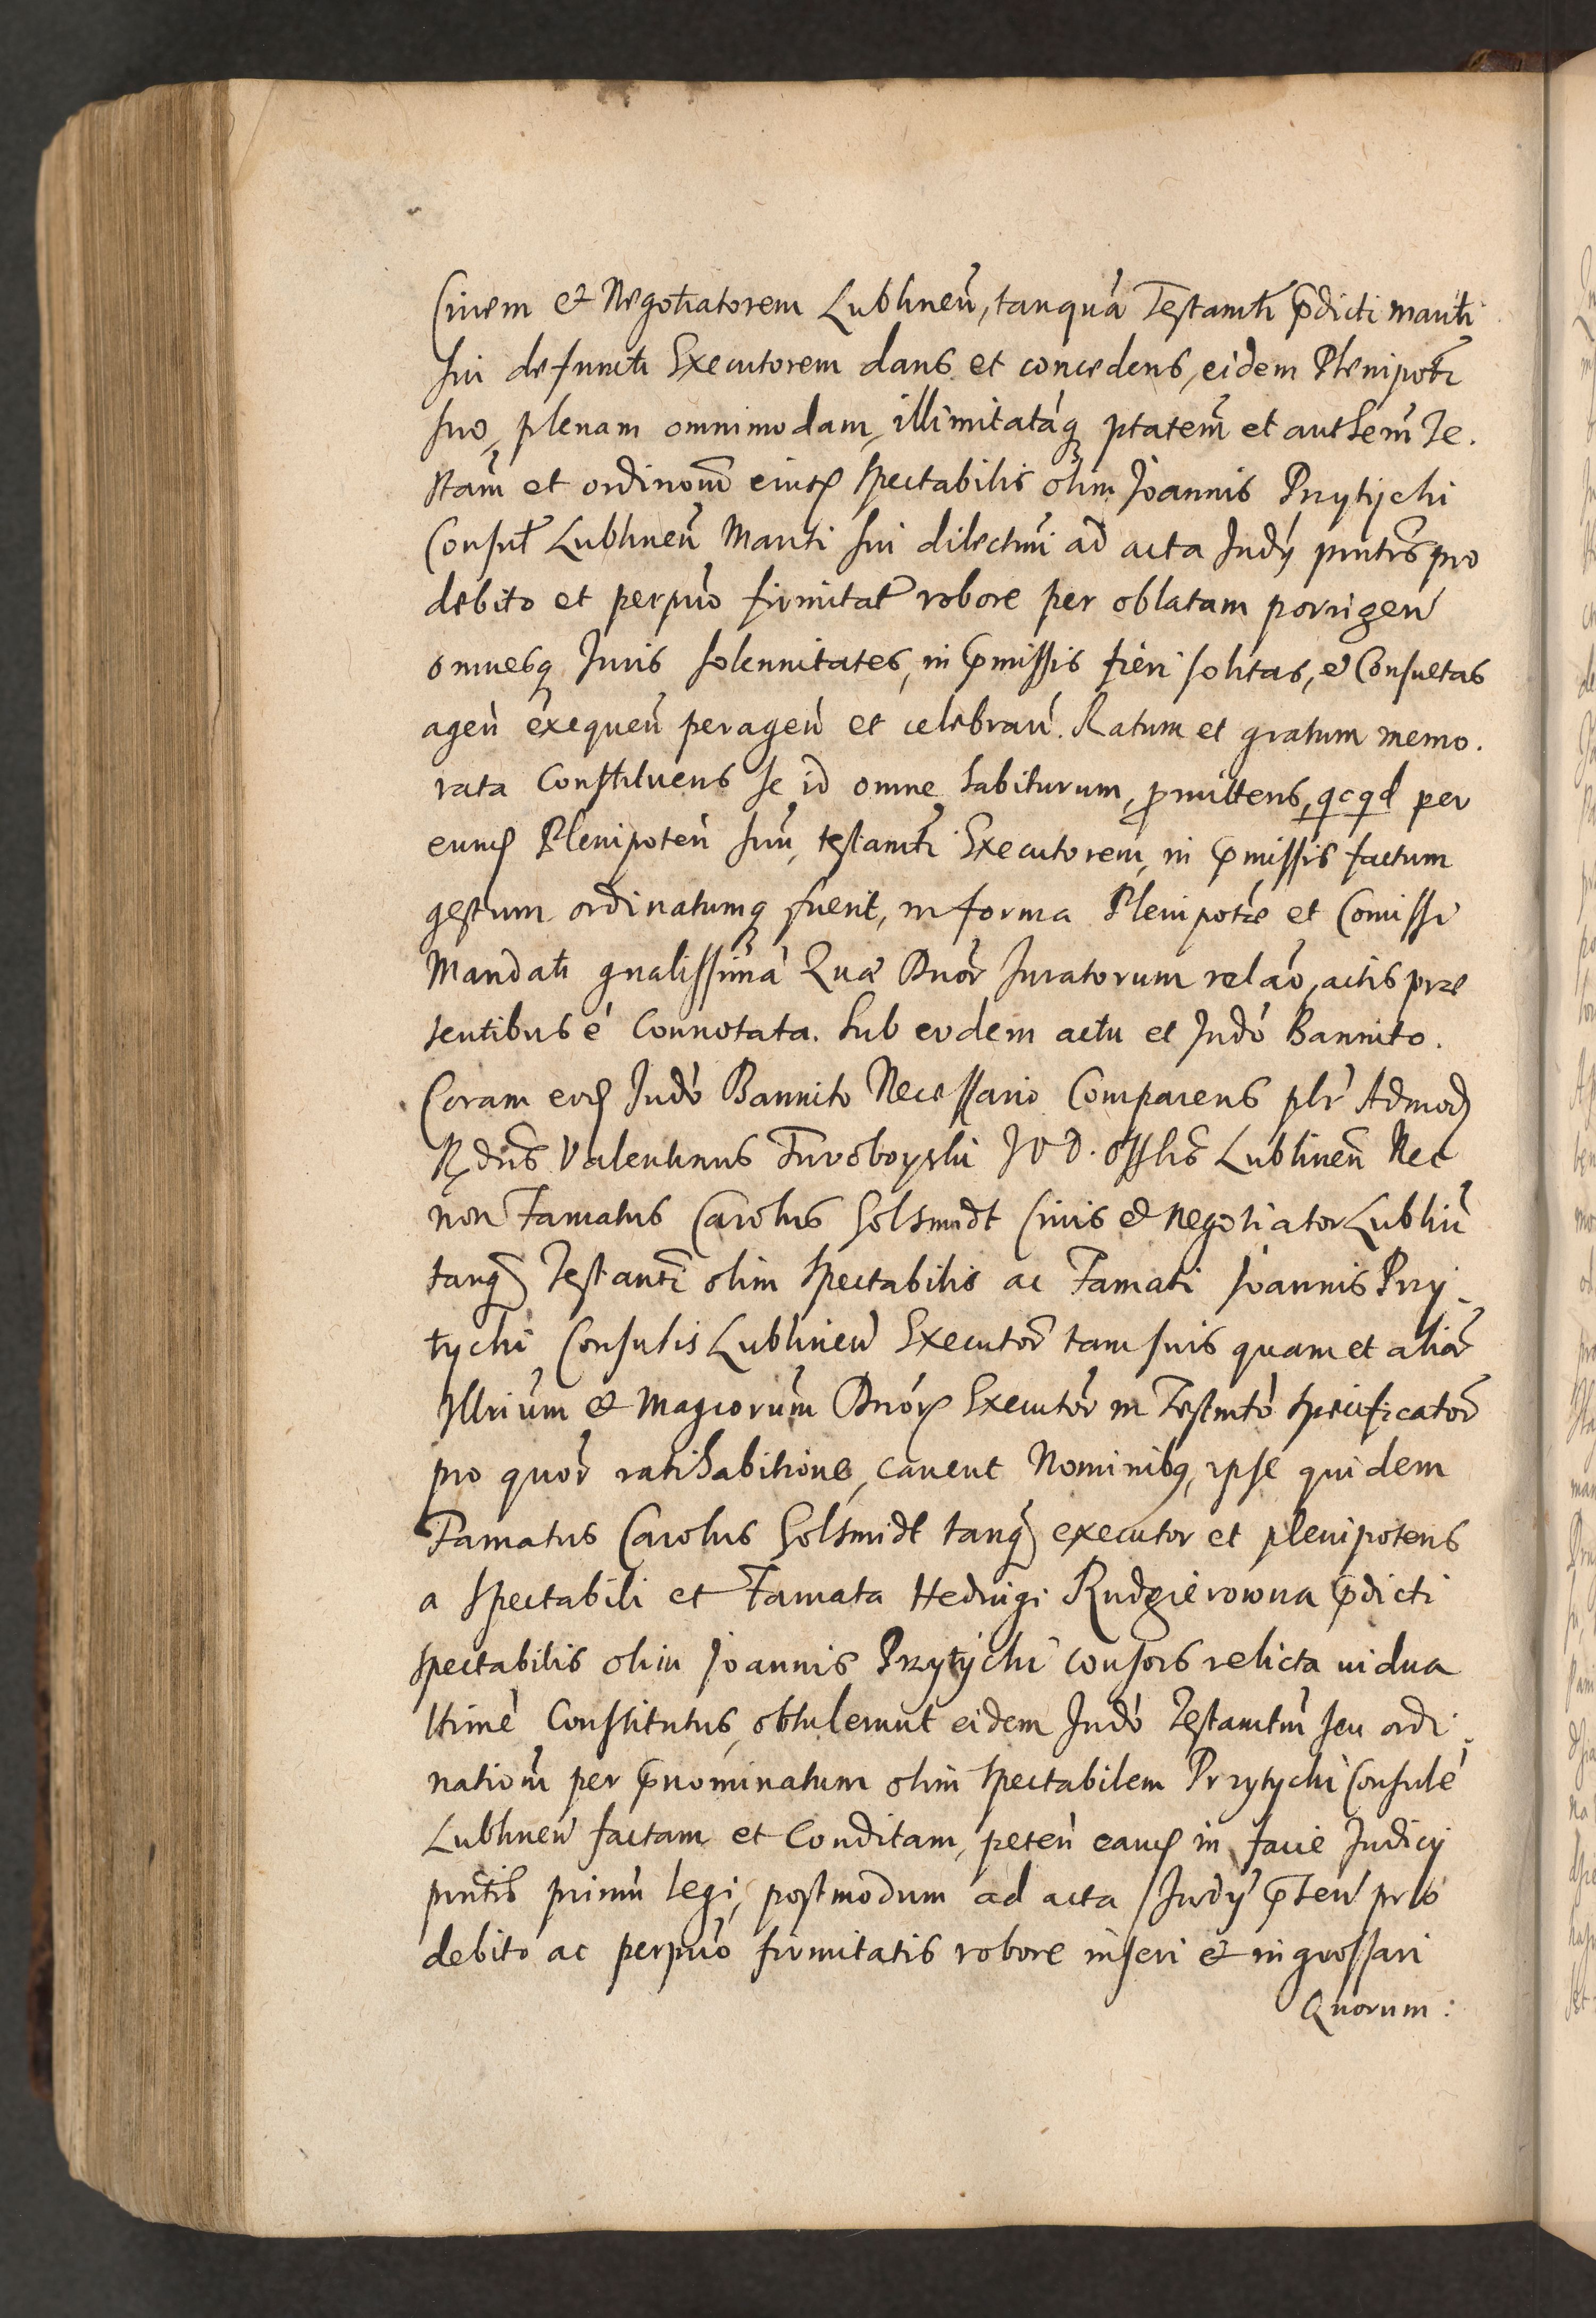 Ciuem et Negotiatorem Lublineñ, tanquã Testamti p̃dicti mariti
sui defuncti Executorem dans et concedens, eidem Plenipotẽ
suo, plenam omnimodam, illimitatáq ptatem̃ et authem̃ Te.
stam̃ et ordinom̃ eiusd spectabilis olim Joannis Przytychi
Consul Lublineñ Mariti sui dilectmi ad acta Judÿ pnntis pro
debito et perpuo firmitat robore per oblatam porrigeñ
omnesq Juris solennitates, in p̃missis fieri solitas, et Consuetas
ageñ exequeñ perageñ et celebrañ. Ratum et gratum memo.
rata Constituens se id omne habiturum, promittens, qcqd per
eund Plenipoteñ suũ, testamti Executorem, in p̃missis factum
gestum ordinatumq fuerit, in forma Plenipotæ et Comissi
Mandati gnalissima Quæ Dnor Juratorum relao, actis præ
sentibus é Connotata. Sub eodem actu et Judo Bannito.
Coram eod Judo Bannito Necessario Comparens plr Admod
Rdus Valentinus Turoboyski JVD. Offlis Lublineñ Nec
non Famatus Carolus Holsmidt Civis et negotiator Lubliñ
tanq Testamti olim Spectabilis ac Famati Joannis Przy_
tychi Consulis Lublineñ Executor tam suis quam et alior
Illrium et Magcorum Dnor Executor in Testmto specificator
pro quor ratihabitione, cauent Nominibq, ipse quidem
Famatus Carolus Holsmidt tanq executor et plenipotens
a spectabili et Famata Hedvigi Rudgierowna p̃dicti
spectabilis olim Joannis Przytychi consors relicta uidua
ltime Constitutus, obtulerunt eidem Judo Testamtm seu ordi_
nationm per p̃nominatum olim spectabilem Przytychi Consulé
Lublineñ factam et Conditam, peteñ eand in facie Judicÿ
pnntis primũ legi, postmodum ad acta Judÿ p̃señ pro
debito ac perpuo firmitatis robore inseri et ingrossari
Quorum: